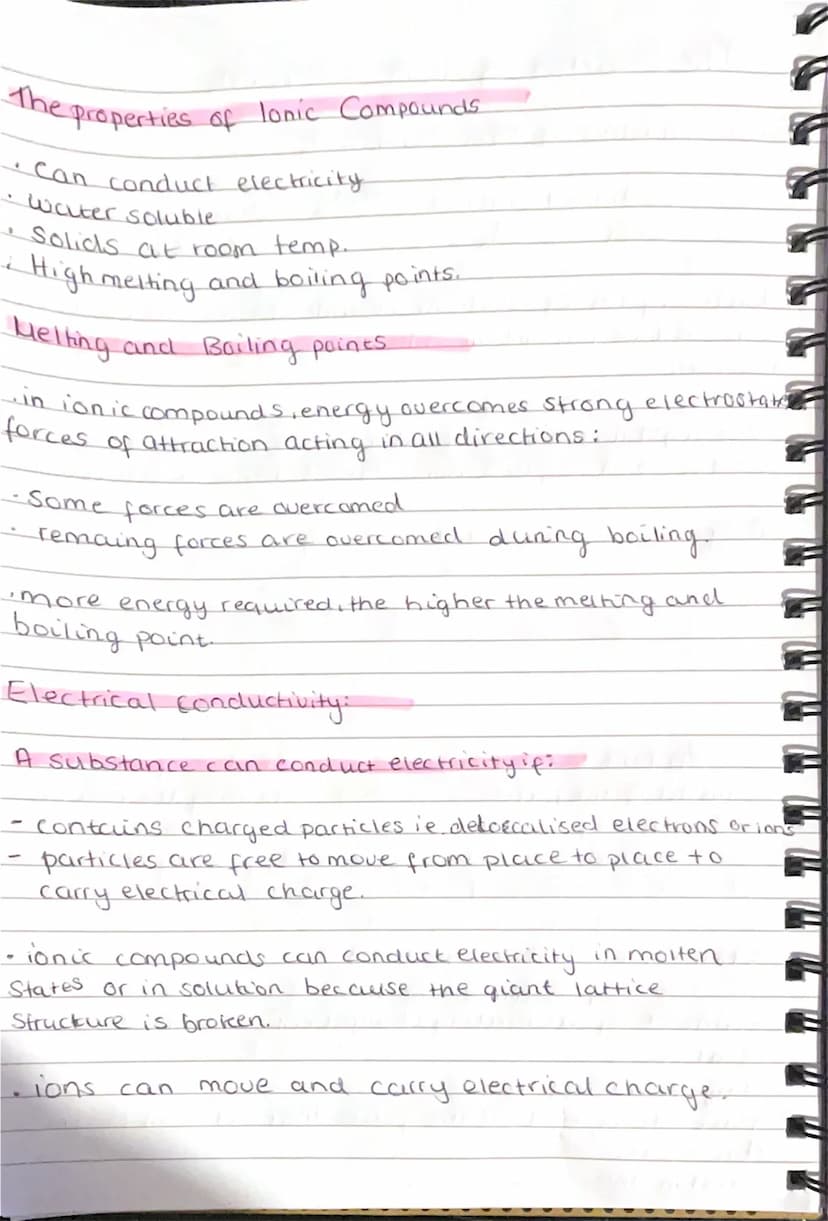 The properties of Ionic Compounds
· Can conduct electricity
· water soluble
· Solids at room temp.
· High melting and boiling points.
Melting and Boiling points
· in ionic compounds, energy overcomes strong electrostatic
forces of attraction acting in all directions:
- Some forces are overcomed
· remaing forces are overcomed during boiling.
· more energy required, the higher the melting and
boiling point.
Electrical conductivity:
A substance can conduct electricity if:
- contains charged particles ie. delocalised electrons or ions
- particles are free to move from place to place to
carry electrical charge.
· ionic compounds can conduct electricity in molten
states or in solution because the giant lattice
structure is broken.
· ions can move and carry electrical charge.